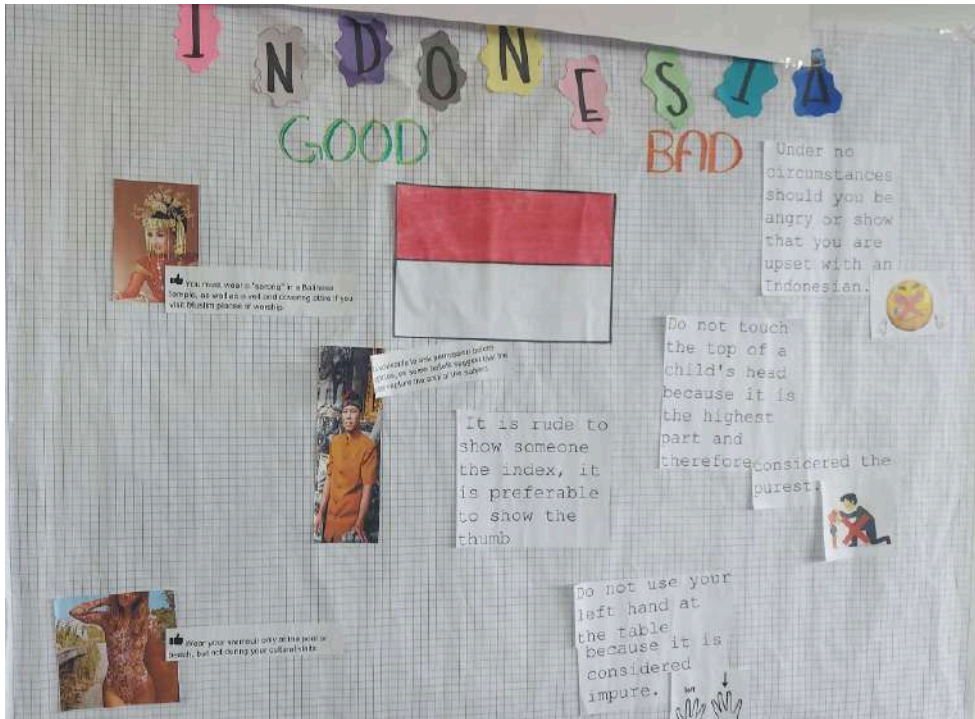 INDONESIA
GOOD
BAD
You must wear a "sarong" in a Balinese
temple, as well as a veil and covering attire if you
visit Muslim places of worship.
It is rude to
show someone
the index, it
is preferable
to show the
thumb
Wear your swimsuit only at the pool or
beach, but not during your cultural visits.
Under no
circumstances
should you be
angry or show
that you are
upset with an
Indonesian.
Do not touch
the top of a
child's head
because it is
the highest
part and
therefore considered the
purest.
Do not use your
left hand at
the table
because it is
considered
impure.